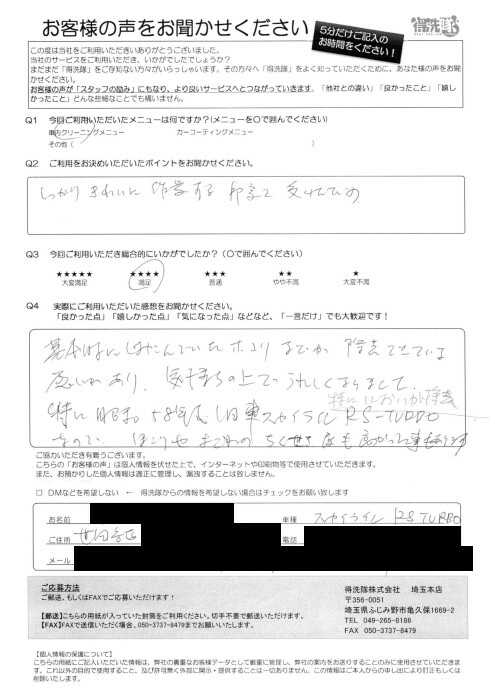 お客様の声をお聞かせください
5分だけご記入の
お時間をください！
得洗隊
この度は当社をご利用いただきありがとうございました。
当社のサービスをご利用いただき、いかがでしたでしょうか？
まだまだ「得洗隊」をご存知ない方々がいらっしゃいます。その方々へ「得洗隊」をよく知っていただくために、あなた様の声をお聞
かせください。
お客様の声が「スタッフの励み」にもなり、より良いサービスへとつながっていきます。「他社との違い」「良かったこと」「嬉し
かったこと」どんな些細なことでも構いません。
Q1 今回ご利用いただいたメニューは何ですか？(メニューを○で囲んでください)
車内クリーニングメニュー カーコーティングメニュー
その他（ ）
Q2 ご利用をお決めいただいたポイントをお聞かせください。
しっかり きれいに 作業する 印象を 受けたため
Q3 今回ご利用いただき総合的にいかがでしたか？（○で囲んでください）
★★★★★ ★★★★ ★★★ ★★ ★
大変満足 満足 普通 やや不満 大変不満
Q4 実際にご利用いただいた感想をお聞かせください。
「良かった点」「嬉しかった点」「気になった点」などなど、「一言だけ」でも大歓迎です！
ホコリ までが 除去できている
感じがあり、気持ちの上で うれしくなりました。
特に においが除去
特に 昭和 58年式 旧車スカイライン RS-TURBO
なので、ほこりや
ご協力いただき有難うございます。
こちらの「お客様の声」は個人情報を伏せた上で、インターネットや印刷物等で使用させていただきます。
また、お預かりした個人情報は適正に管理し、漏洩することは致しません。
□ DMなどを希望しない ← 得洗隊からの情報を希望しない場合はチェックをお願い致します
お名前 車種 スカイライン RS TURBO
ご住所 世田谷区 電話
メール
ご応募方法
ご郵送、もしくはFAXでご応募いただけます！
【郵送】こちらの用紙が入っていた封筒をご利用ください。切手不要で郵送いただけます。
【FAX】FAXで送信いただく場合、050-3737-8479までお願いいたします。
得洗隊株式会社 埼玉本店
〒356-0051
埼玉県ふじみ野市亀久保1669-2
TEL 049-265-8188
FAX 050-3737-8479
【個人情報の保護について】
こちらの用紙にご記入いただいた情報は、弊社の貴重なお客様データとして厳重に管理し、弊社の案内をお送りすることのみに使用させていただきま
す。これ以外の目的で使用すること、及び許可無く外部に開示・提供することは一切ありません。この情報はご本人からの申し出により訂正もしくは
削除いたします。